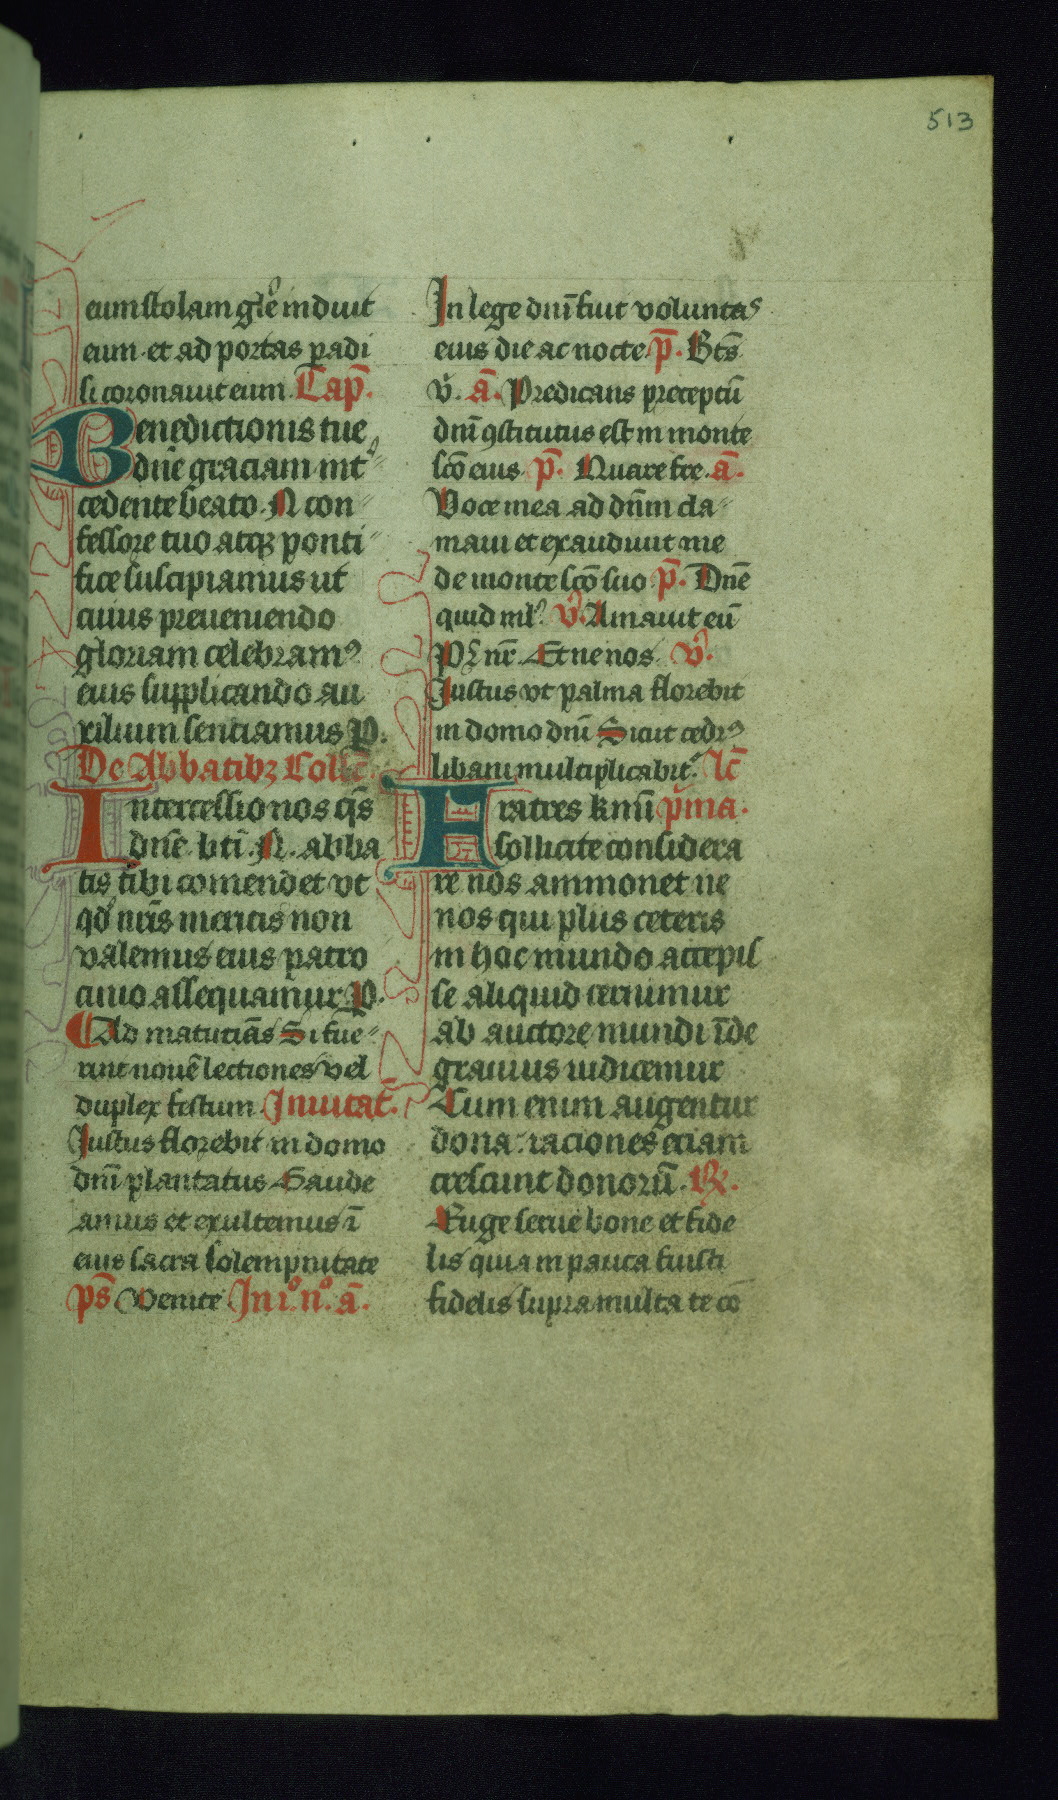 513
eum stolam gl̄e induit
eum. et ad portas padi
si coronauit eum. Cap̄.
Benedictionis tue
dn̄e graciam int̾
cedente beato. N con
fessore tuo atqꝫ ponti
fice suscipiamus ut
cuius preueniendo
gloriam celebramꝰ
eius supplicando au
xilium senciamus P.
De Abbatibꝫ Coll̄c
Intercessio nos q̄s
dn̄e bt̄i. N. abba
tis tibi comendet vt
qd̓ nr̄is meritis non
valemus eius patro
cinio assequamur P.
Ad matutīas Si fue
rint nouē lectiones vel
duplex festum Inuitat̄.
Justus florebit in domo
dn̄i plantatus Gaude
amus et exultemus ī
eius sacra solempnitate
p̄s Venite In i.º n.º ā.
In lege dn̄i fuit voluntas
eius die ac nocte p̄. Bt̄s
v̓. ā. Predicans preceptū
dn̄i ꝯstitutus est in monte
sc̄o eius p̄. Quare fre. ā.
Voce mea ad dn̄m cla
maui et exaudiuit me
de monte sc̄o suo p̄. Dn̄e
quid ml̓. v̓. Amauit eū
Pꝛ nr̄. Et ne nos. v̓.
Justus vt palma florebit
in domo dn̄i Sicut cedrꝰ
libani multiplicabit᷑. lc̄
Fratres kmī prima.
sollicite considera
re nos ammonet ne
nos qui plus ceteris
in hoc mundo accepis
se aliquid cernimur
ab auctore mundi īde
grauius iudicemur
Cum enim augentur
dona: raciones eciam
crescunt donorū. ℟.
Euge serue bone et fide
lis quia in pauca fuisti
fidelis supra multa te cō